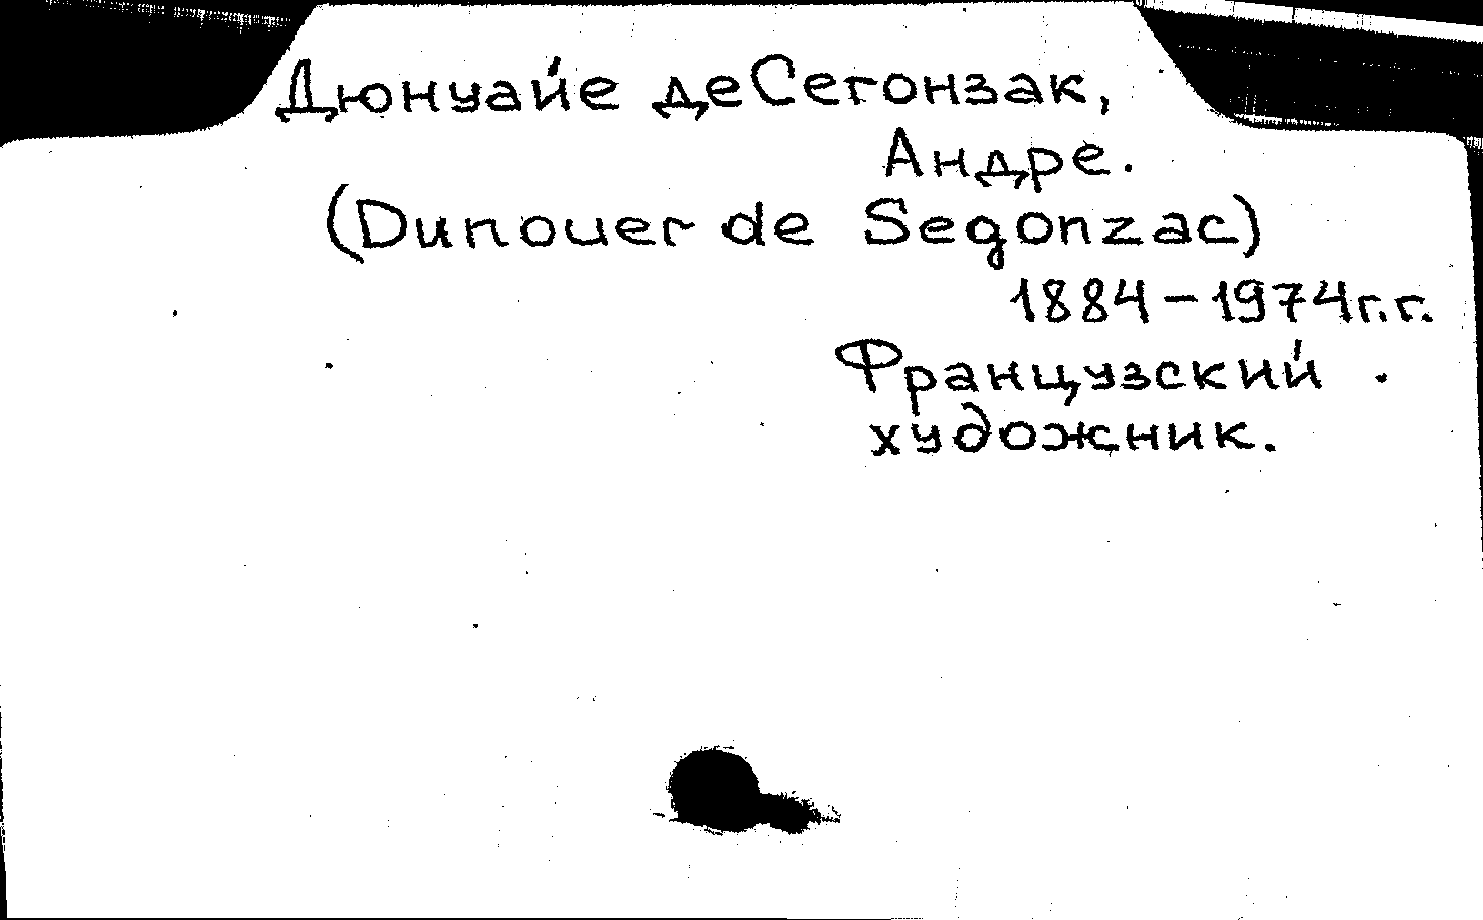 Дюнуайе де Сегонзак,
Андре.
(Dunouer de Segonzac)
1884-1974г.г.
Французский
художник.